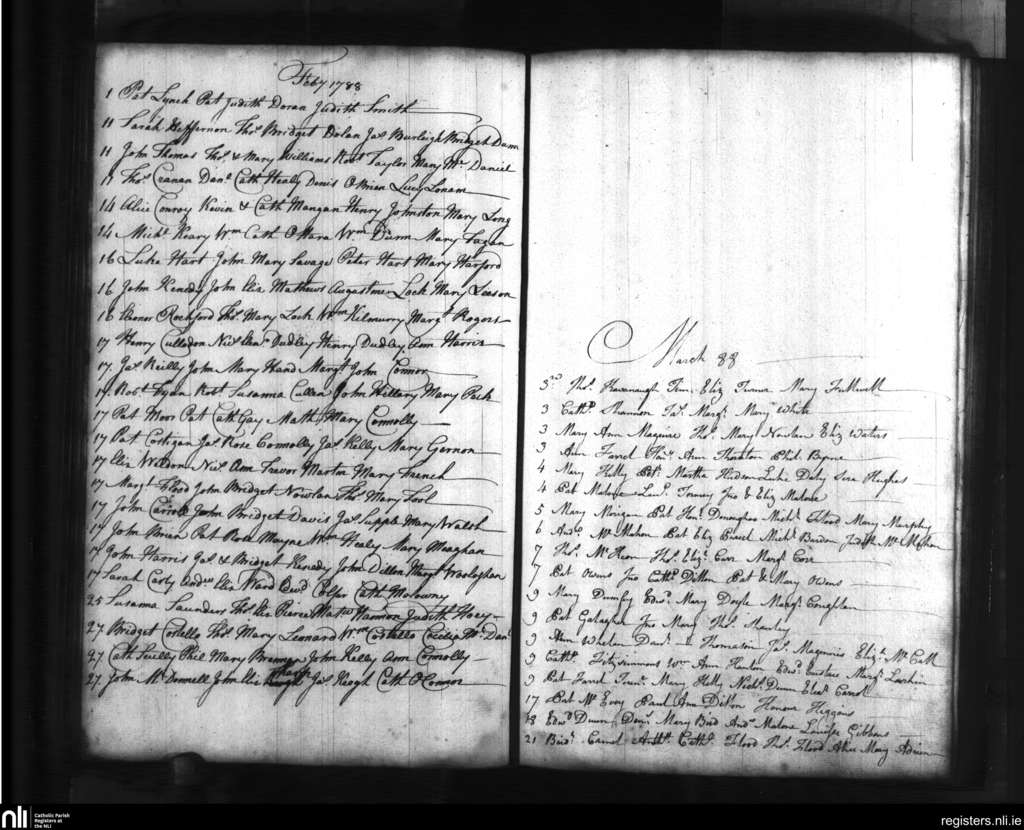 Feby 1788
1 Pat Lynch Pat Judith Doran Judith Smith
11 Sarah Heffernon Thos Bridget Dolan Jas Burleigh Bridget Dunn
11 John Thomas Thos & Mary Williams Robt Taylor Mary Mc Daniel
Thos Cranan Danl Cath Healy Denis O Brien Lucy Lonam
14 Alice Conroy Kevin & Cath Mangan Henry Johnston Mary Long
14 Michl Keary Wm Cath O Hara Wm Dunn Mary Fagan
16 Luke Hart John Mary Savage Peter Hart Mary Harford
16 John Kenedy John Eliz Mathews Augastine Lock Mary Leeson
16 Elenor Rochford Thos Mary Lock Wm Kilmurry Margt Rogers
17 Henry Culloden Nics Elenr Dudley Henry Dudley Ann Harris
17. Jas Reilly John Mary Hand Margt John Connor
Robt Ryan Robt Susanna Cullen John Hillary Mary Peck
17 Pat Moor Pat Cath Gay Math Mary Connolly
17 Pat Costigan Jas Rose Connolly Jas Kelly Mary Gernon
17 Eliz Wilson Nics Ann Trevor Martin Mary French
17 Margt Flood John Bridget Nowlan Thos Mary Tool
17 John Carroll John Bridget Davis Jas Supple Mary Walsh
17 John Brian Pat Rose Mayne Wm Healy Mary Meaghan
17 John Harris Jas & Bridget Kenedy John Dillon Margt
17 Sarah Carty Andw Eliz Ward Edwd Cath Molowny
25 Susanna Saunders Thos Eliz Pierce Mattw Hannon Judith Hoey
27 Bridget Costello Thos Mary Leonard Wm Costello Cecilia Mc Danl
27 Cath Scully Phil Mary Brennan John Kelly Ann Connolly
27 John Mc Donnell John Eliz Jas Keogh Cath O Connor
March 88
3rd Thos Kavanaugh Eliz Turner Mary Fullwell
3 Cathe Shannon Jas Margt Mary White
3 Mary Ann Maguire Thos Mary Nowlan Eliz Waters
3 Ann Farrel Ann Thornton Phil Byrne
4 Mary Kelly Petr Martha Hudson Luke Daly Sera Hughes
4 Pat Malone Jno & Eliz Malone
5 Mary Morgan Pat Honr Donoghoe Michl Flood Mary Murphy
6 Andw Mc Mahon Pat Eliz Michl Burden Judith Mc Mahon
7 Thos Mc Keon Thos Elizt Carr Margt Carr
7 Pat Owens Jno Cathe Ditton Pat & Mary Owens
9 Mary Dumby Edwd Mary Doyle Margt Coughlan
9 Pat Galagher Jno Mary Thos Hanlon
9 Ann Whelan & Thornton Jas Maguire Elizt Mc Call
9 Cathe Fitzsimmons Wm Ann Hanlon Edwd Eustace Margt Larkin
9 Pat Farrel Mary Kelly Nichs Dunn Elenr Carrol
17 Pat Mc Evoy Paul Ann Ditton Honora Higgins
18 Edwd Dunn Denis Mary Bird Andw Malone Louisa Gibbons
21 Bridt Camel Anth Cathe Flood Thos Flood Alice Mary
nli
Catholic Parish
Registers at
the NLI
registers.nli.ie